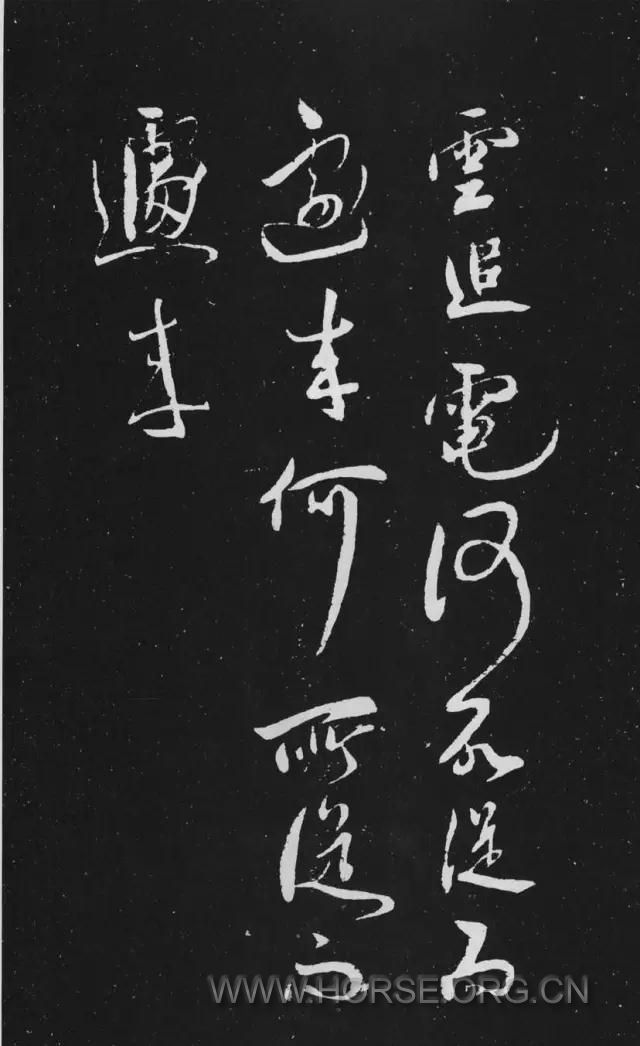 雲追電何所從而
遽來何所從而
遽來
WWW.HORSE.ORG.CN